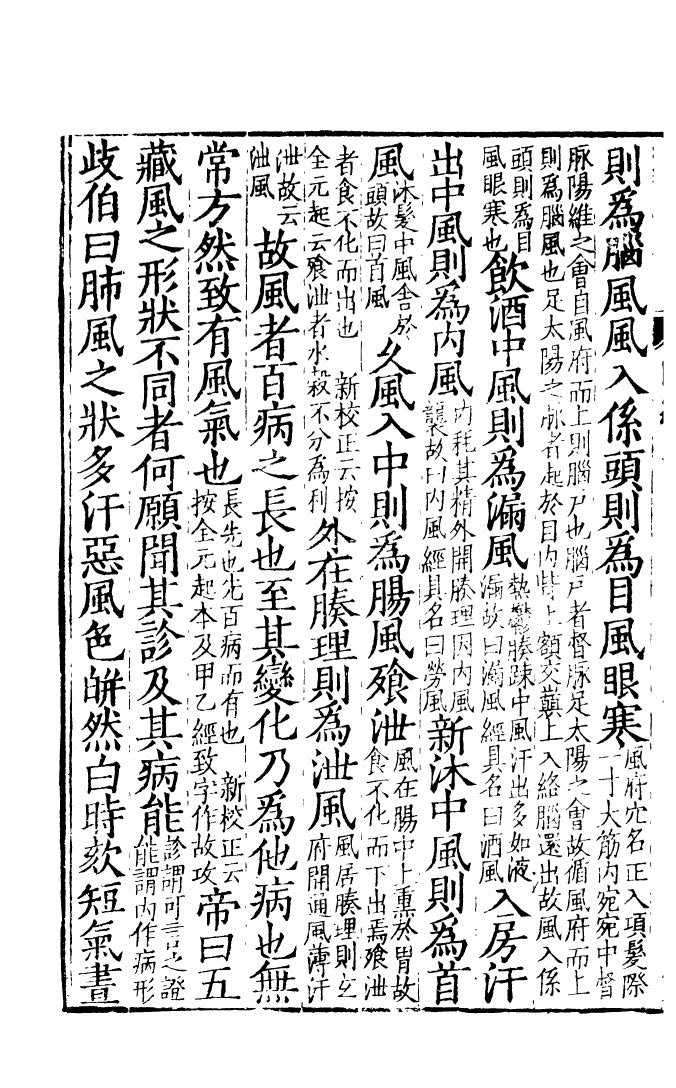 則爲腦風風入係頭則爲目風眼寒風府穴名正入項髮際一寸大筋内宛宛中督
脉陽維之會自風府而上則腦户也腦户者督脉足太陽之會故循風府而上則爲腦風也足太陽之脉者起於目内眥上額交巔上入絡腦還出故風入係
頭則爲目風眼寒也飲酒中風則爲漏風熱鬱腠踈中風汗出多如液漏故曰漏風經具名曰酒風入房汗
出中風則爲内風内耗其精外開腠理因内風襲故曰内風經具名曰勞風新沐中風則爲首
風沐髮中風舎於頭故曰首風久風入中則爲腸風飱泄風在腸中上熏於胃故食不化而下出焉飱泄
者食不化而出也 新校正云按全元起云飱泄者水穀不分爲利外在腠理則爲泄風風居腠理則玄府開通風薄汗
泄故云泄風故風者百病之長也至其變化乃爲他病也無
常方然致有風氣也長先也先百病而有也 新校正云按全元起本及甲乙經致字作故攻帝曰五
藏風之形狀不同者何願聞其診及其病能診謂可言之證能謂内作病形
歧伯曰肺風之狀多汗惡風色皏然白時欬短氣晝